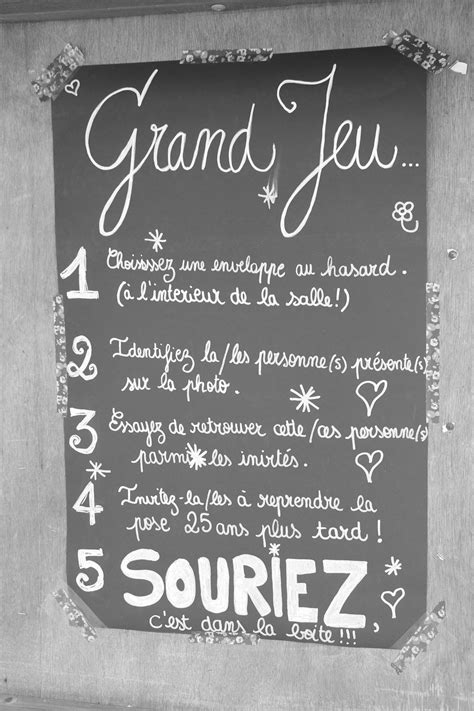 Grand Jeu...
1 Choisissez une enveloppe au hasard.
(à l'interieur de la salle!)
2 Identifiez la/les personne(s) présente(s)
sur la photo.
3 Essayez de retrouver cette/ces personne(s)
parmi les inirtés.
4 Invitez-la/les à reprendre la
pose 25 ans plus tard !
5 SOURIEZ,
c'est dans la boîte !!!